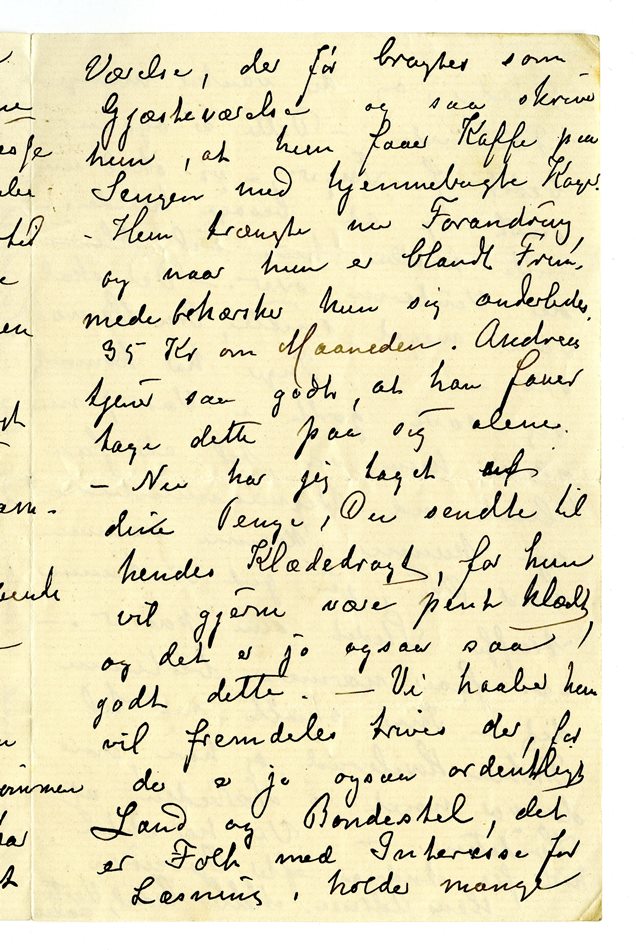 Værelse, der før bragtes som
Gjæsteværelse og saa skrive
hun, at hun faaer Kaffe paa
Sengen med hjemmebagte Kager.
- Hun trængte nu Forandring
og naar hun er blandt Frem-
mede behærsker hun sig anderledes.
35 Kr om Maaneden. Andreas
tjener saa godt, at han faaer
tage dette paa sig alene.
- Nu har jeg taget af
dine Penge, Du sendte til
hendes Klædedragt, for hun
vil gjerne være pent klædt,
og det er jo ogsaa saa
godt dette. - Vi haaber hun
vil fremdeles trives der, for
de er jo ogsaa ordentligt
Land og Bondestel, det
er Folk med Interesse for
Læsning, holde mange